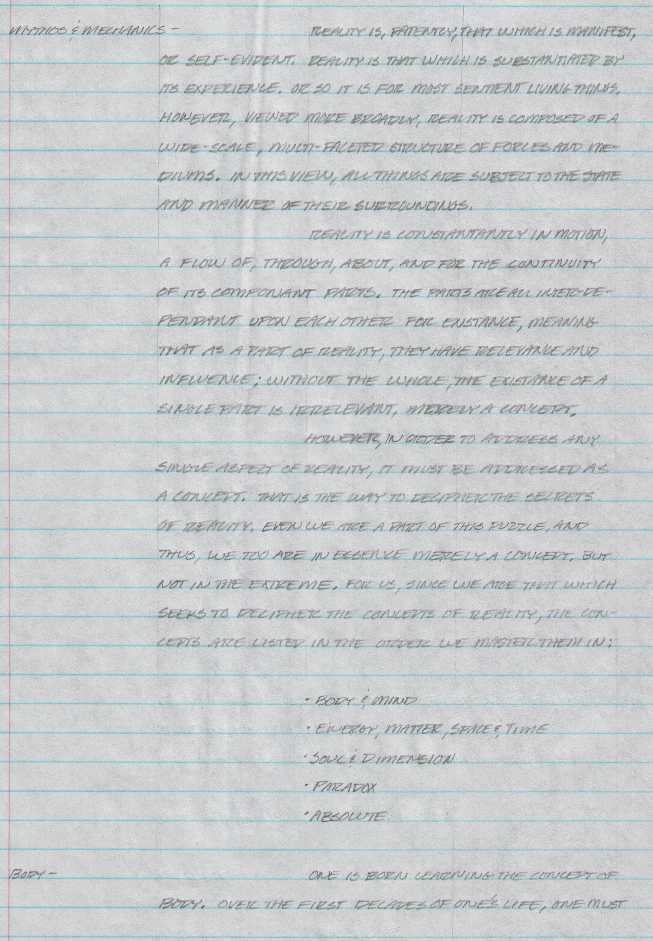 MYTHOS & MECHANICS – REALITY IS, PATENTLY, THAT WHICH IS MANIFEST,
OR SELF-EVIDENT. REALITY IS THAT WHICH IS SUBSTANTIATED BY
ITS EXPERIENCE. OR SO IT IS FOR MOST SENTIENT LIVING THINGS.
HOWEVER, VIEWED MORE BROADLY, REALITY IS COMPOSED OF A
WIDE-SCALE, MULTI-FACETED STRUCTURE OF FORCES AND ME-
DIUMS. IN THIS VIEW, ALL THINGS ARE SUBJECT TO THE STATE
AND MANNER OF THEIR SURROUNDINGS.
REALITY IS CONSTANTANTLY IN MOTION,
A FLOW OF, THROUGH, ABOUT, AND FOR THE CONTINUITY
OF ITS COMPONANT PARTS. THE PARTS ARE ALL INTER-DE-
PENDANT UPON EACH OTHER FOR ENSTANCE, MEANING
THAT AS A PART OF REALITY, THEY HAVE RELEVANCE AND
INFLUENCE; WITHOUT THE WHOLE, THE EXISTANCE OF A
SINGLE PART IS IRRELEVANT, MERELY A CONCEPT.
HOWEVER, IN ORDER TO ADDRESS ANY
SINGLE ASPECT OF REALITY, IT MUST BE ADDRESSED AS
A CONCEPT. THAT IS THE WAY TO DECIPHER THE SECRETS
OF REALITY. EVEN WE ARE A PART OF THIS PUZZLE, AND
THUS, WE TOO ARE IN ESSENCE MERELY A CONCEPT. BUT
NOT IN THE EXTREME. FOR US, SINCE WE ARE THAT WHICH
SEEKS TO DECIPHER THE CONCEPTS OF REALITY, THE CON-
CEPTS ARE LISTED IN THE ORDER WE MASTER THEM IN:
· BODY & MIND
· ENERGY, MATTER, SPACE & TIME
· SOUL & DIMENSION
· PARADOX
· ABSOLUTE
BODY – ONE IS BORN LEARNING THE CONCEPT OF
BODY. OVER THE FIRST DECADES OF ONE'S LIFE, ONE MUST